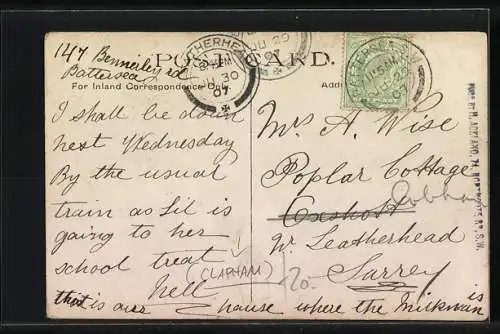 147 Bennerley rd
Battersea
POST CARD.
For Inland Correspondence O
LEATHERHEAD
JU 30
07
JU 29
07
BATTERSEA S.W.
JU 29
I shall be down
next Wednesday
By the usual
train as Lil is
going to her
school treat
(CLAPHAM)
Nell
that is our house where the milkman is
Mrs A. Wise
Poplar Cottage
Oxshott Cobham
Nr Leatherhead
Surrey
To.